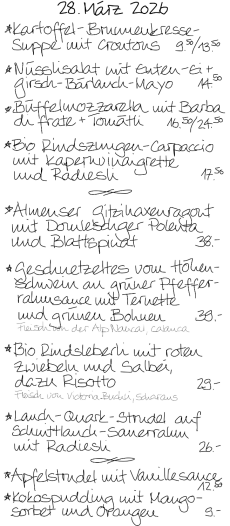 28. März 2026
*Kartoffel-Brunnenkresse-
Suppe mit Croutons 9.50/13.50
*Nüsslisalat mit Enten-Ei +
Girsch-Bärlauch-Mayo 14.50
*Büffelmozzarella mit Barba
di frate + Tomätli 16.50/24.50
*Bio Rindszungen-Carpaccio
mit Kapernvinaigrette
und Radiesli 17.50
*Almenser Gitzihaxenragout
mit Domleschger Polenta
und Blattspinat 38.-
*Geschnetzeltes vom Höhen-
schwein an grüner Pfeffer-
rahmsauce mit Ternette
und grünen Bohnen 39.-
Fleisch von der Alp Nurcai,
*Bio Rindsleberli mit roten
Zwiebeln und Salbei,
dazu Risotto 29.-
Fleisch von Victoria
*Lauch-Quark-Strudel auf
Schnittlauch-Sauerrahm
mit Radiesli 26.-
*Apfelstrudel mit Vanillesauce
12.50
*Kokospudding mit Mango-
sorbet und Orangen 9.-